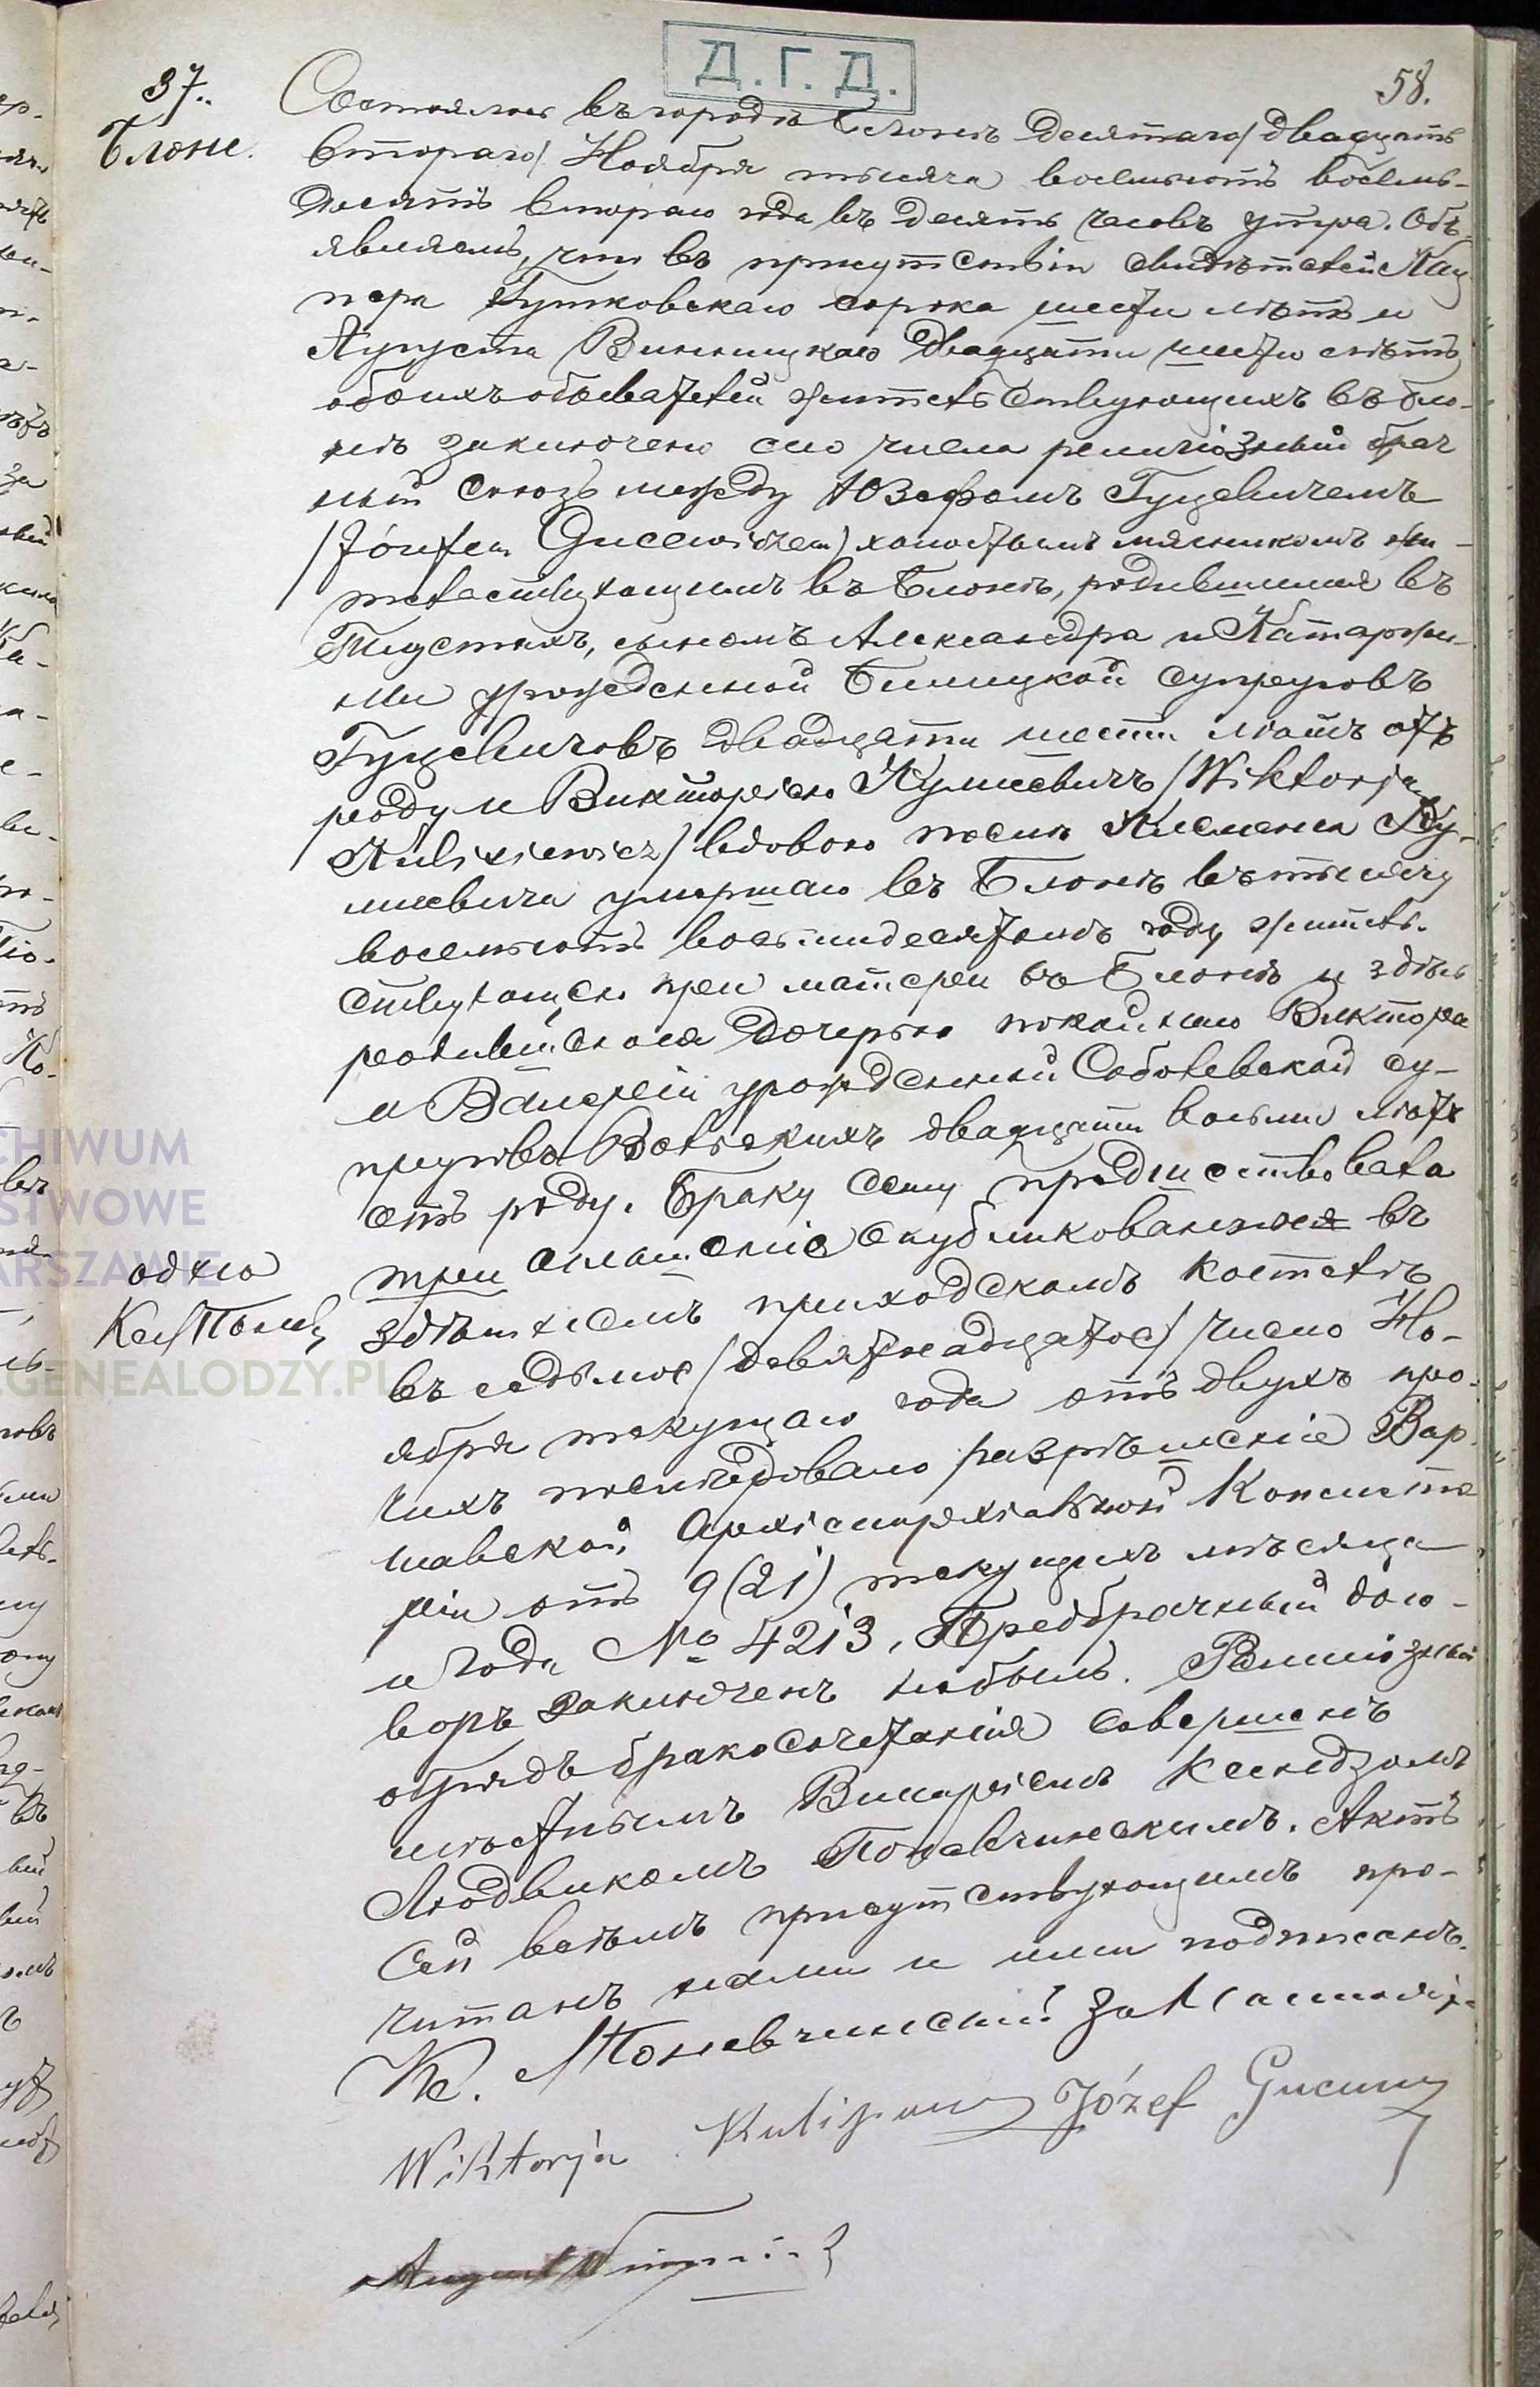 Д.Г.Д.
58.
37.
Блоне.
Состоялось въ городѣ Блонѣ десятаго/двадцать
втораго/ Ноября тысяча восемьсотъ восемь-
десятъ втораго года въ десять часовъ утра. Объ-
являемъ, что въ присутствіи свидѣтелей Кац
пера Гутковскаго сорока шести лѣтъ и
Августа Винницкаго двадцати шести лѣтъ
обоихъ обывателей жительствующихъ въ Бло-
нѣ заключено сего числа религіозный брач
ный союзъ между Юзефомъ Гуцевичемъ
/Józefem Gucewiczem/ холостымъ мясникомъ жи-
тельствующимъ въ Блонѣ, родившимся въ
Тлустыхъ, сыномъ Александра и Катаржи-
ны урожденной Билицкой супруговъ
Гуцевичовъ двадцати шести лѣтъ отъ
роду и Викторіею Кулисевичъ /Wiktorją
Kulisiewicz/ вдовою послѣ Клеменса Ку-
лисевича умершаго въ Блонѣ въ тысячу
восемьсотъ восьмидесятомъ году, житель-
ствующею при матери въ Блонѣ и здѣсь
родившеюся дочерью покойнаго Виктора
и Валеріи урожденной Соболевской су-
пруговъ Вольскихъ двадцати восьми лѣтъ
отъ роду. Браку сему предшествовала
три оглашенія опубликованныя въ
здѣшнемъ приходскомъ костелѣ
въ седьмое /девятнадцатое/ число Но-
ября текущаго года отъ двухъ про-
чихъ послѣдовало разрѣшеніе Вар-
шавской Архіепархіальной Консисто
ріи отъ 9 (21) текущихъ мѣсяца
и года № 4213. Предбрачный дого-
воръ заключенъ небылъ. Религіозный
обрядъ бракосочетанія совершенъ
мѣстнымъ Викаріемъ Ксендзомъ
Людвикомъ Поневчинскимъ. Актъ
сей всѣмъ присутствующимъ про-
читанъ нами и ими подписанъ.
Кс.
Wiktorja Józef
August
одно
CHIWUM
STWOWE
ARSZAWIE
.GENEALODZY.PL